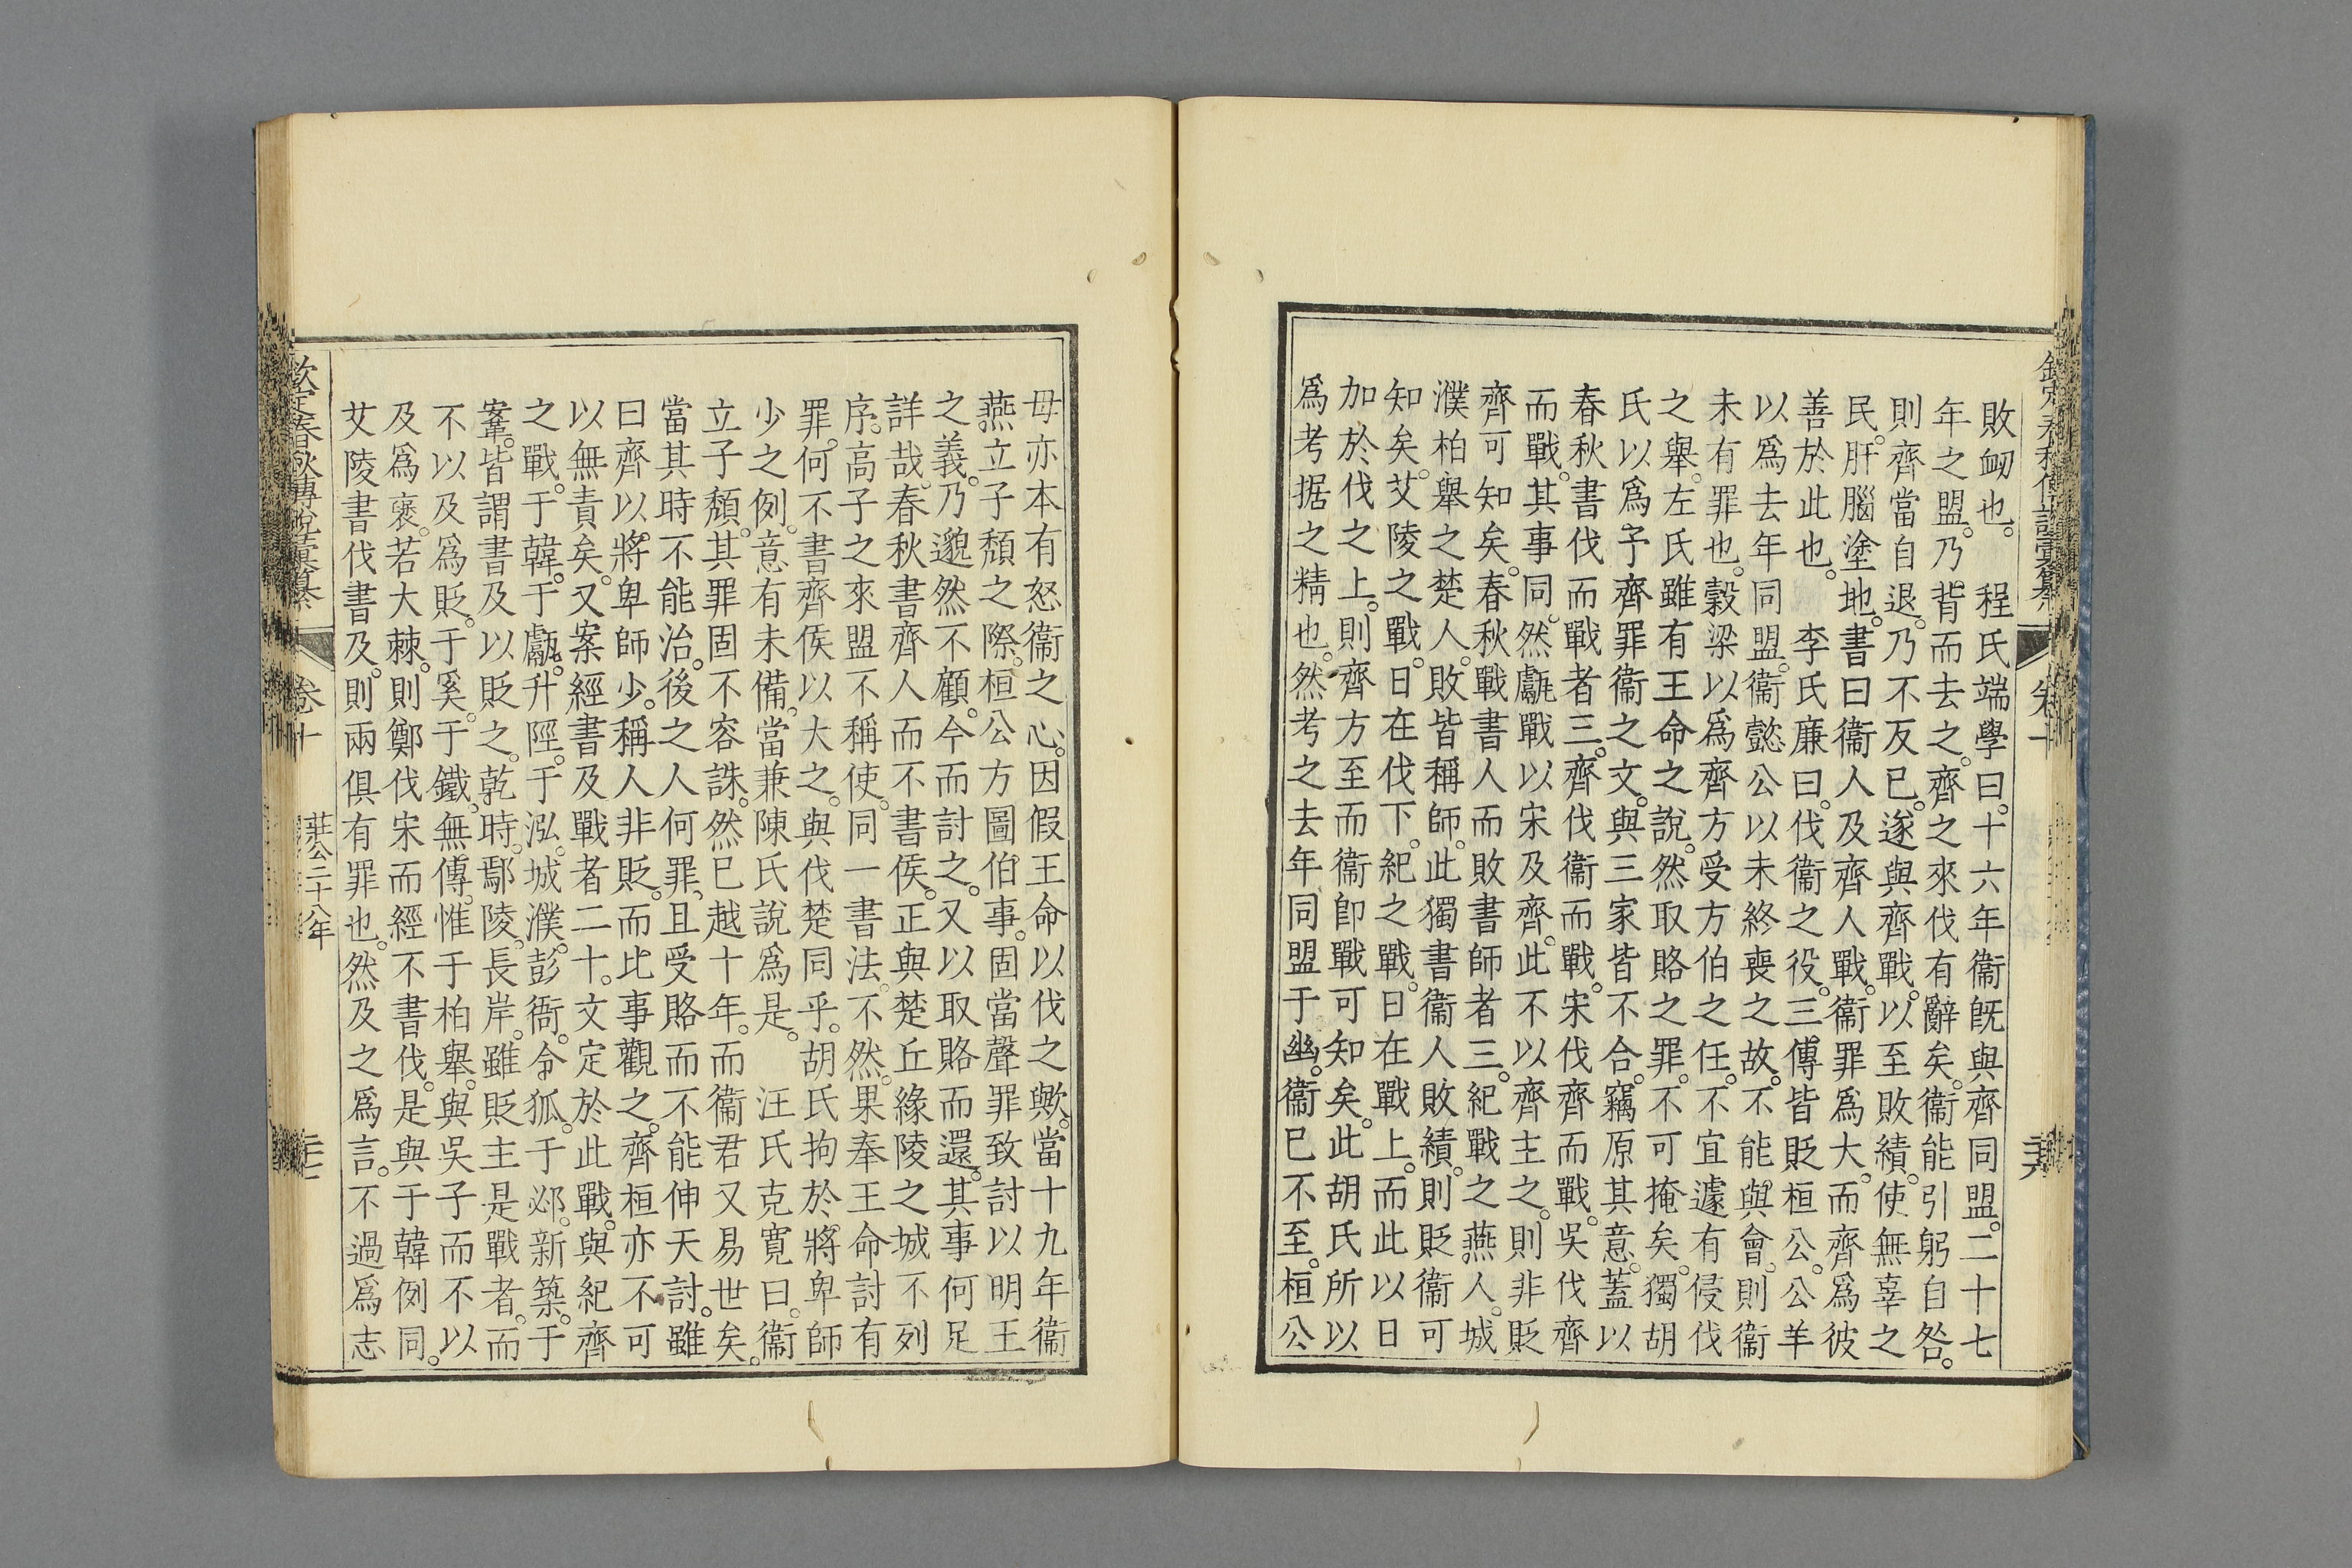 敗衂也。　程氏端學曰。十六年衞旣與齊同盟。二十七
年之盟。乃背而去之。齊之來伐有辭矣。衞能引躬自咎。
則齊當自退。乃不反已。遂與齊戰。以至敗績。使無辜之
民。肝腦塗地。書曰衞人及齊人戰。衞罪爲大。而齊爲彼
善於此也。　李氏廉曰。伐衞之役。三傳皆貶桓公。公羊
以爲去年同盟。衞懿公以未終喪之故。不能與會。則衞
未有罪也。穀梁以爲齊方受方伯之任。不宜遽有侵伐
之舉。左氏雖有王命之說。然取賂之罪。不可掩矣。獨胡
氏以爲予齊罪衞之文。與三家皆不合。竊原其意。蓋以
春秋書伐而戰者三。齊伐衞而戰。宋伐齊而戰。吳伐齊
而戰。其事同。然甗戰以宋及齊。此不以齊主之。則非貶
齊可知矣。春秋戰書人而敗書師者三。紀戰之燕人。城
濮柏舉之楚人。敗皆稱師。此獨書衞人敗績。則貶衞可
知矣。艾陵之戰。日在伐下。紀之戰。日在戰上。而此以日
加於伐之上。則齊方至而衞卽戰可知矣。此胡氏所以
爲考据之精也。然考之去年同盟于幽。衞已不至。桓公
毋亦本有怒衞之心。因假王命以伐之歟。當十九年衞
燕立子頹之際。桓公方圖伯事。固當聲罪致討以明王
之義。乃邈然不顧。今而討之。又以取賂而還。其事何足
詳哉。春秋書齊人而不書侯。正與楚丘緣陵之城不列
序。高子之來盟不稱使。同一書法。不然。果奉王命討有
罪。何不書齊侯以大之。與伐楚同乎。胡氏拘於將卑師
少之例。意有未備。當兼陳氏說爲是。　汪氏克寬曰。衞
立子頹。其罪固不容誅。然已越十年。而衞君又易世矣。
當其時不能治。後之人何罪。且受賂而不能伸天討。雖
曰齊以將卑師少。稱人非貶。而比事觀之。齊桓亦不可
以無責矣。又案經書及戰者二十。文定於此戰。與紀齊
之戰。于韓。于甗。升陘。于泓。城濮。彭衙。令狐。于邲。新築。于
鞌。皆謂書及以貶之。乾時。鄢陵。長岸。雖貶主是戰者。而
不以及爲貶。于奚。于鐵。無傳。惟于柏舉。與吳子而不以
及爲襃。若大棘。則鄭伐宋而經不書伐。是與于韓例同。
艾陵書伐書及。則兩俱有罪也。然及之爲言。不過爲志
欽定春秋傳說彙纂
卷十
莊公二十八年